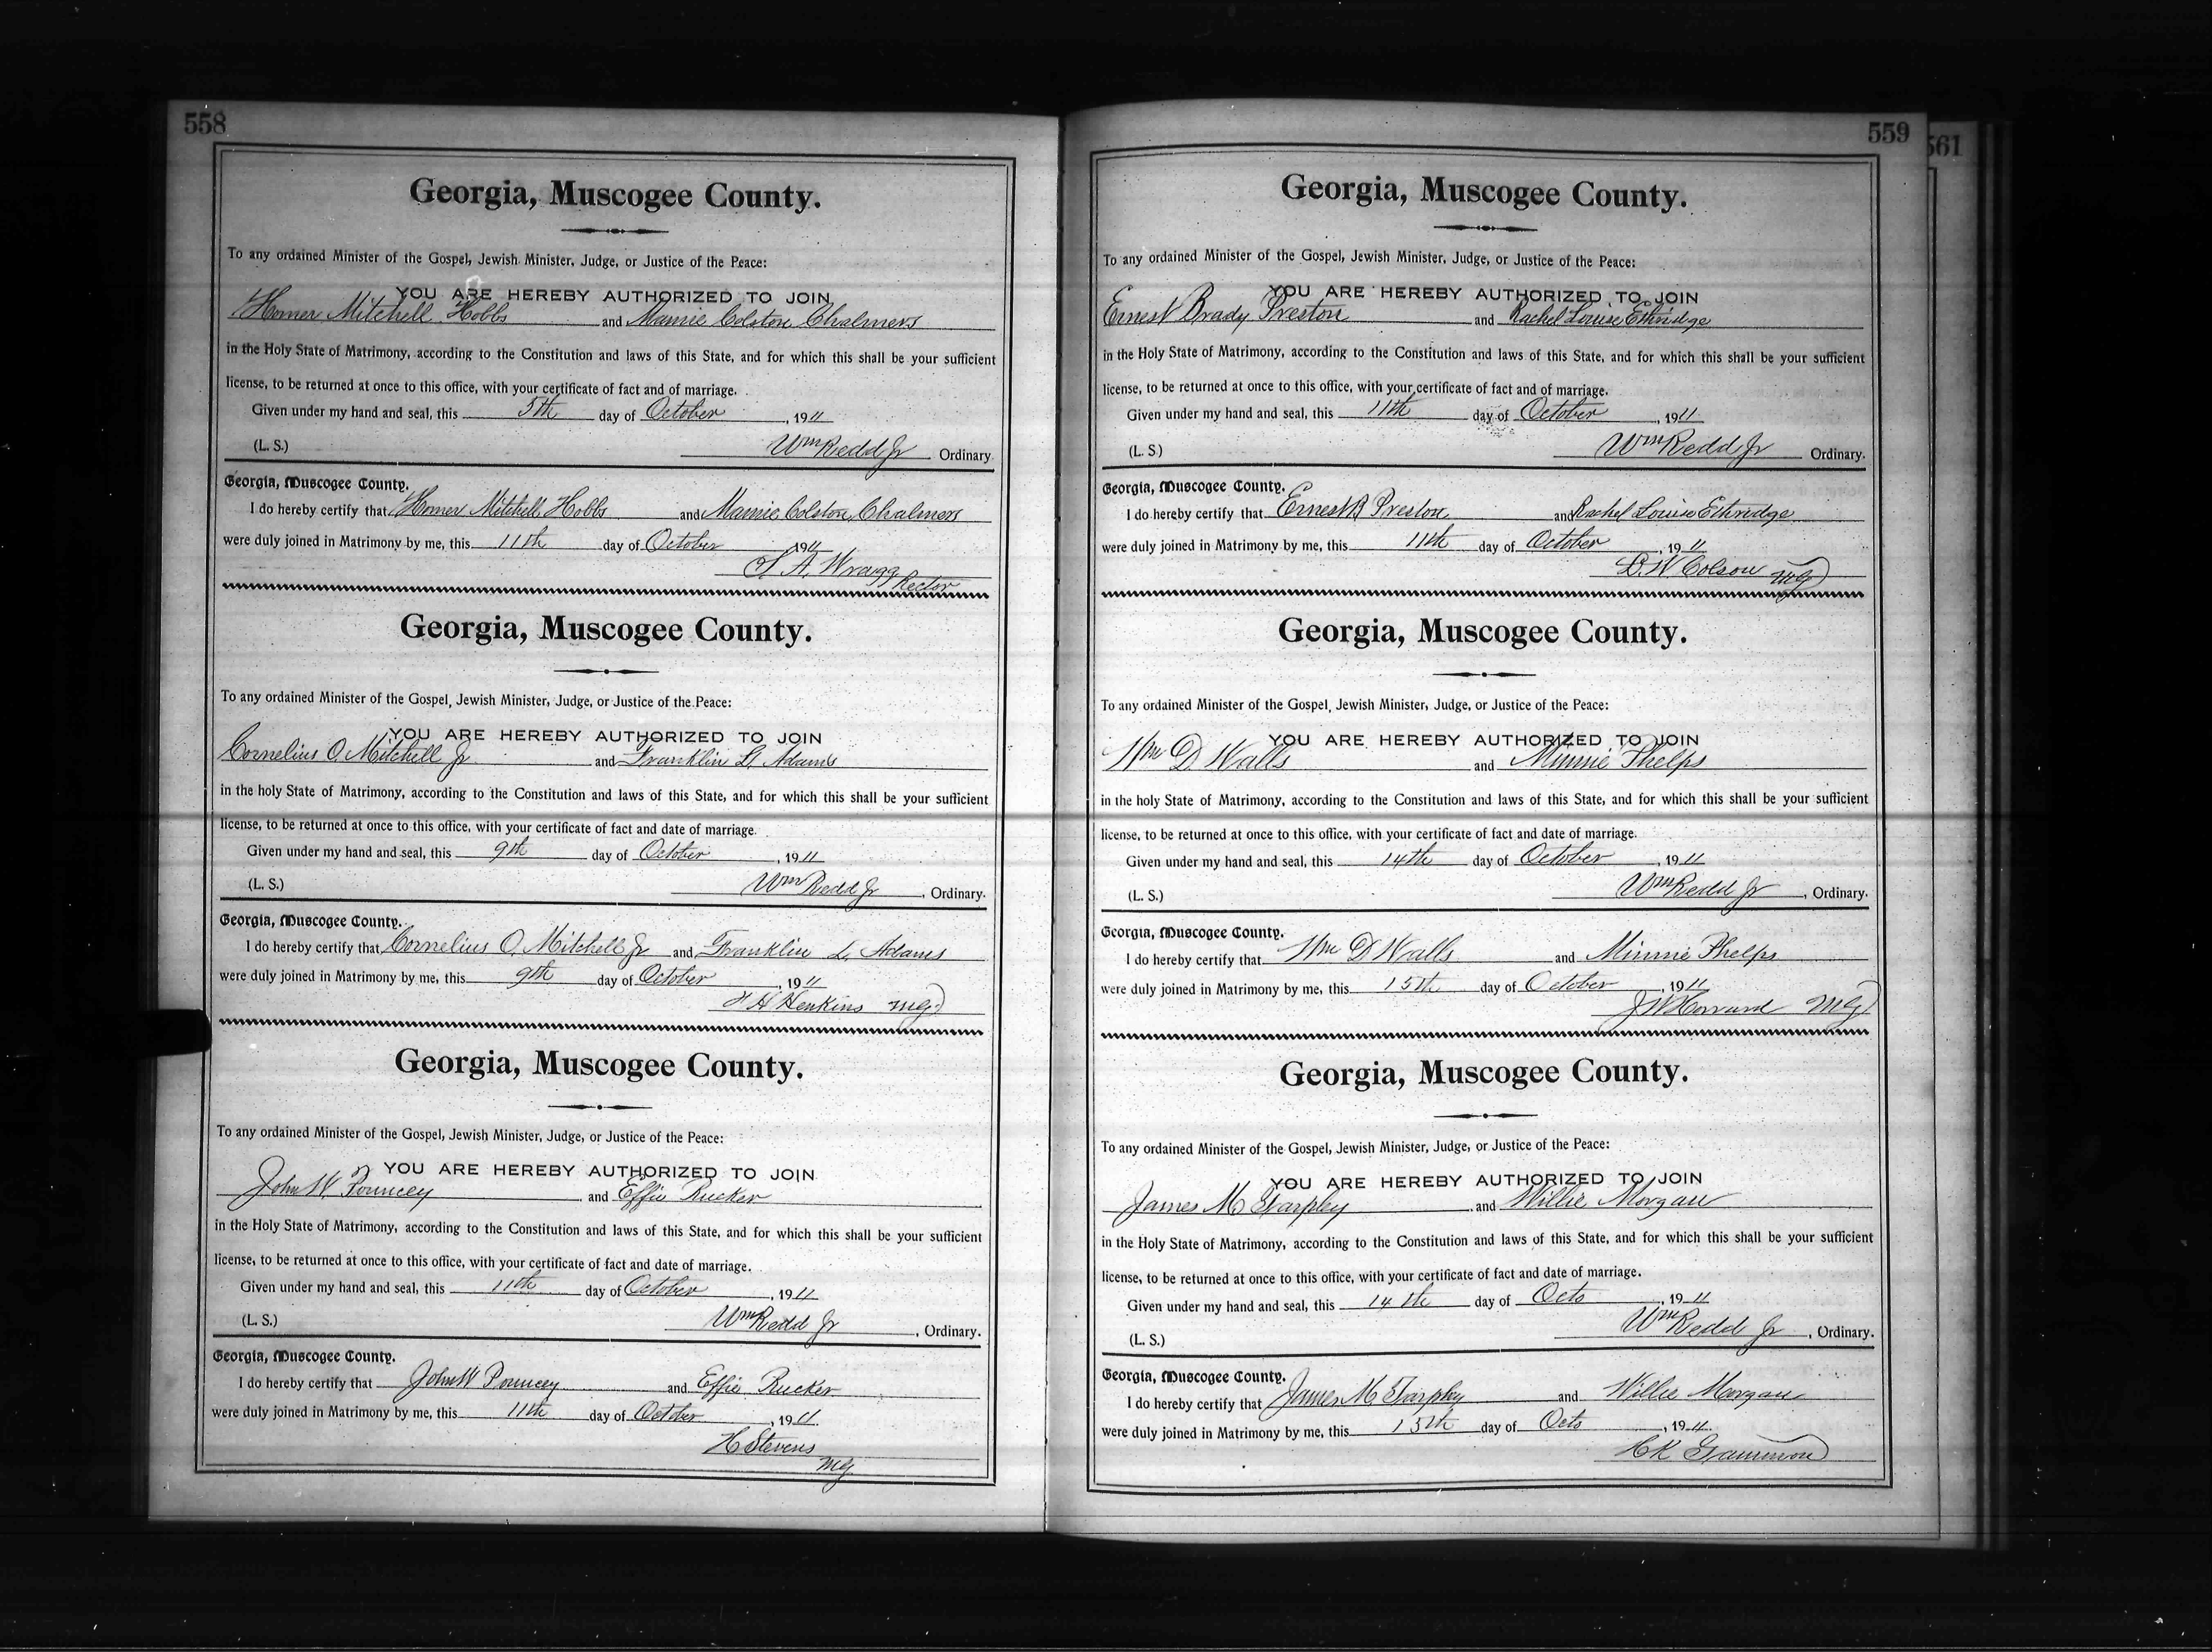 558
Georgia, Muscogee County.
To any ordained Minister of the Gospel, Jewish Minister, Judge, or Justice of the Peace:
YOU ARE HEREBY AUTHORIZED TO JOIN
Homer Mitchell Hobbs and Mamie Colston Chalmers
in the Holy State of Matrimony, according to the Constitution and laws of this State, and for which this shall be your sufficient
license, to be returned at once to this office, with your certificate of fact and of marriage.
Given under my hand and seal, this 5th day of October, 1911
(L. S.) Wm Redd Jr Ordinary.
Georgia, Muscogee County.
I do hereby certify that Homer Mitchell Hobbs and Mamie Colston Chalmers
were duly joined in Matrimony by me, this 11th day of October 1911
S. A. Wragg Rector
Georgia, Muscogee County.
To any ordained Minister of the Gospel, Jewish Minister, Judge, or Justice of the Peace:
YOU ARE HEREBY AUTHORIZED TO JOIN
Cornelius O. Mitchell Jr and Franklin L. Adams
in the holy State of Matrimony, according to the Constitution and laws of this State, and for which this shall be your sufficient
license, to be returned at once to this office, with your certificate of fact and date of marriage.
Given under my hand and seal, this 9th day of October, 1911
(L. S.) Wm Redd Jr, Ordinary.
Georgia, Muscogee County.
I do hereby certify that Cornelius O. Mitchell Jr and Franklin L. Adams
were duly joined in Matrimony by me, this 9th day of October, 1911
H Henkins MG
Georgia, Muscogee County.
To any ordained Minister of the Gospel, Jewish Minister, Judge, or Justice of the Peace:
YOU ARE HEREBY AUTHORIZED TO JOIN
John W. Pouncey and Effie Rucker
in the Holy State of Matrimony, according to the Constitution and laws of this State, and for which this shall be your sufficient
license, to be returned at once to this office, with your certificate of fact and date of marriage.
Given under my hand and seal, this 11th day of October, 1911
(L. S.) Wm Redd Jr, Ordinary.
Georgia, Muscogee County.
I do hereby certify that John W Pouncey and Effie Rucker
were duly joined in Matrimony by me, this 11th day of October, 1911.
H Stevens
MG
559
561
Georgia, Muscogee County.
To any ordained Minister of the Gospel, Jewish Minister, Judge, or Justice of the Peace:
YOU ARE HEREBY AUTHORIZED TO JOIN
Ernest Brady Preston and Rachel Louise Ethridge
in the Holy State of Matrimony, according to the Constitution and laws of this State, and for which this shall be your sufficient
license, to be returned at once to this office, with your certificate of fact and of marriage.
Given under my hand and seal, this 11th day of October, 1911.
(L. S.) Wm Redd Jr Ordinary.
Georgia, Muscogee County.
I do hereby certify that Ernest B Preston and Rachel Louise Ethridge
were duly joined in Matrimony by me, this 11th day of October, 1911
D. W. Colson MG
Georgia, Muscogee County.
To any ordained Minister of the Gospel, Jewish Minister, Judge, or Justice of the Peace:
YOU ARE HEREBY AUTHORIZED TO JOIN
Wm D Walls and Minnie Phelps
in the holy State of Matrimony, according to the Constitution and laws of this State, and for which this shall be your sufficient
license, to be returned at once to this office, with your certificate of fact and date of marriage.
Given under my hand and seal, this 14th day of October, 1911
(L. S.) Wm Redd Jr, Ordinary.
Georgia, Muscogee County.
I do hereby certify that Wm D Walls and Minnie Phelps
were duly joined in Matrimony by me, this 15th day of October, 1911
J W Howard MG
Georgia, Muscogee County.
To any ordained Minister of the Gospel, Jewish Minister, Judge, or Justice of the Peace:
YOU ARE HEREBY AUTHORIZED TO JOIN
James M Tarpley and Willie Morgan
in the Holy State of Matrimony, according to the Constitution and laws of this State, and for which this shall be your sufficient
license, to be returned at once to this office, with your certificate of fact and date of marriage.
Given under my hand and seal, this 14th day of Octo, 1911
(L. S.) Wm Redd Jr, Ordinary.
Georgia, Muscogee County.
I do hereby certify that James M Tarpley and Willie Morgan
were duly joined in Matrimony by me, this 15th day of Octo, 1911.
H K Gammon